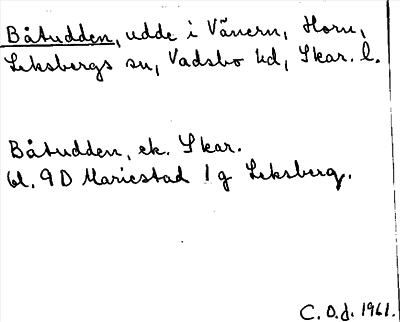 Båtudden, udde i Vänern, Horn,
Leksbergs sn, Vadsbo hd, Skar. l.
Båtudden, ek. Skar.
bl. 9D Mariestad 1g Leksberg.
C. O.d. 1961.